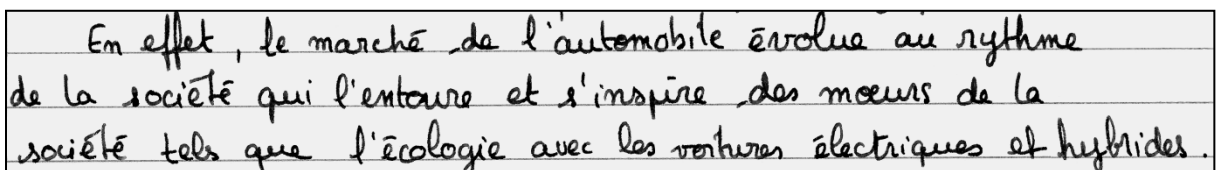 En effet, le marché de l'automobile évolue au rythme
de la société qui l'entoure et s'inspire des moeurs de la
société tels que l'écologie avec les voitures électriques et hybrides.